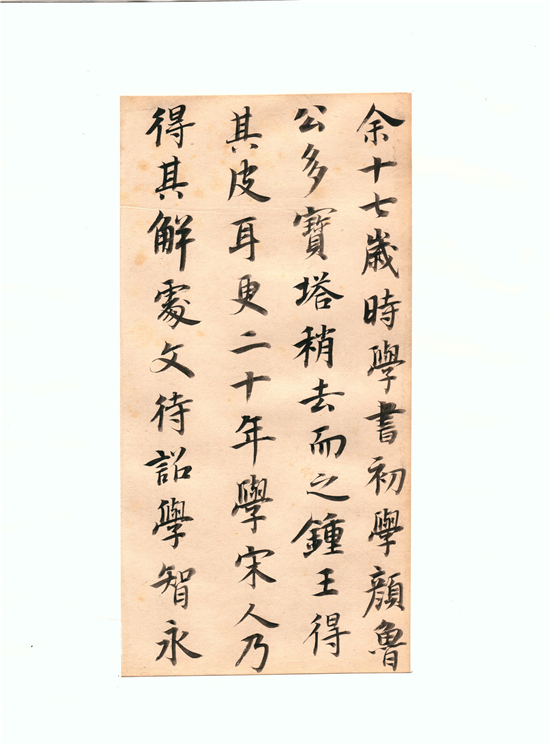 余十七歲時學書初學顏魯
公多寶塔稍去而之鍾王得
其皮耳更二十年學宋人乃
得其解處文待詔學智永